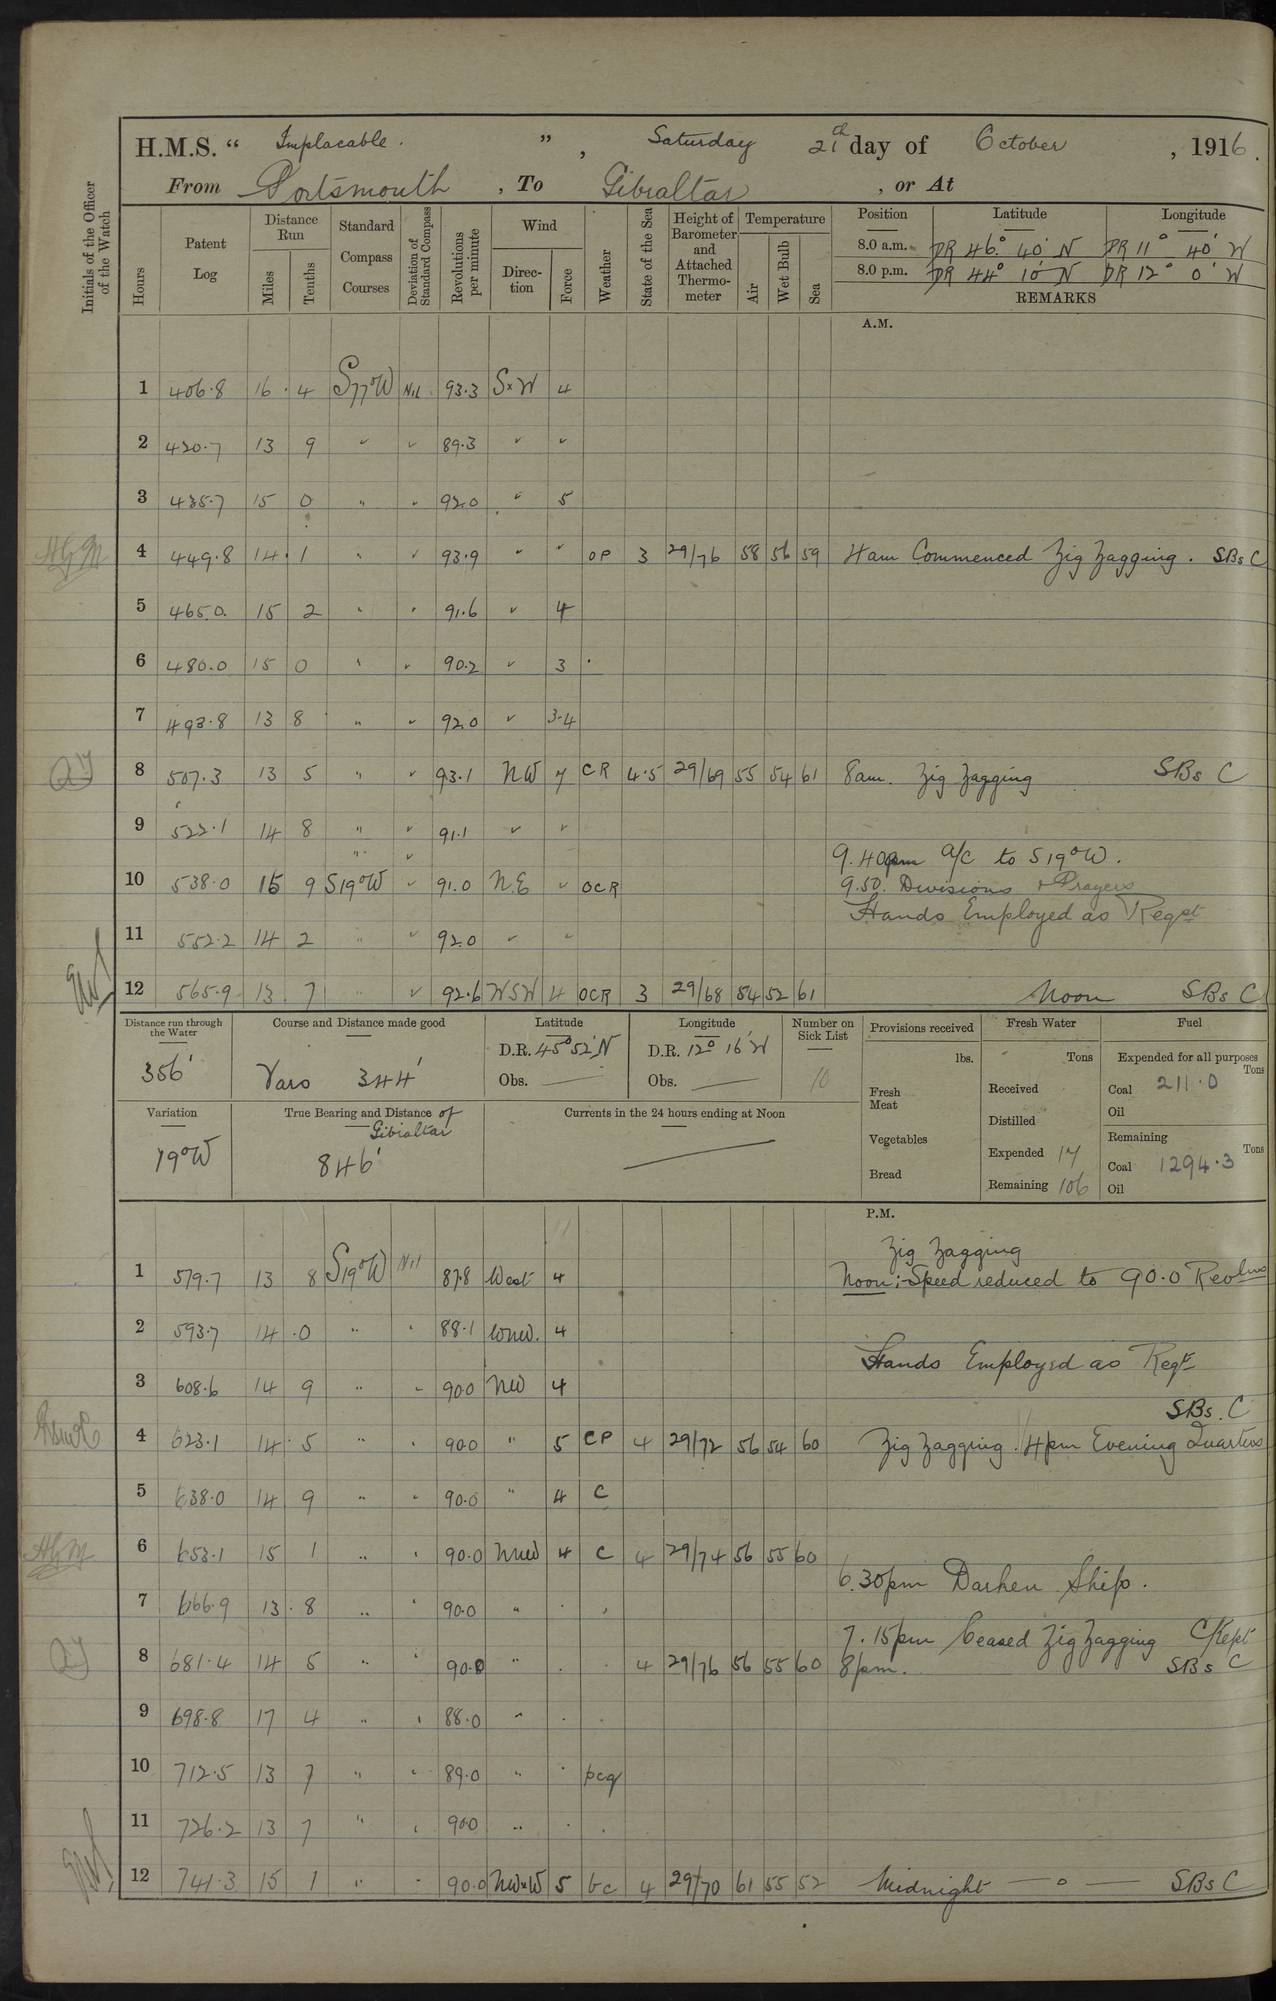 H.M.S. “ Implacable. ”, Saturday 21th day of October, 1916.
From Portsmouth, To Gibraltar, or At
Initials of the Officer of the Watch
Hours Patent Log Distance Run Miles Tenths Standard Compass Courses Deviation of Standard Compass Revolutions per minute Wind Direction Force Weather State of the Sea Height of Barometer and Attached Thermometer Temperature Air Wet Bulb Sea
Position Latitude Longitude
8.0 a.m. DR 46° 40' N DR 11° 40' W
8.0 p.m. DR 44° 10' N DR 12° 0' W
REMARKS
A.M.
1 406.8 16 . 4 S77°W Nil 93.3 SxW 4
2 420.7 13 9 " " 89.3 " "
3 435.7 15 0 " " 92.0 " 5
4 449.8 14 . 1 " " 93.9 " " OP 3 29/76 58 56 59 4am Commenced Zig Zagging. SBs C
5 465.0 15 2 " " 91.6 " 4
6 480.0 15 0 " " 90.2 " 3
7 493.8 13 8 " " 92.0 " 3-4
8 507.3 13 5 " " 93.1 NW 4 CR 4.5 29/69 55 54 61 8am. Zig Zagging SBs C
9 522.1 14 8 " " 91.1 " "
9.40 a/c to S19°W.
10 538.0 15 9 S19°W " 91.0 N.E " OCR 9.50. Divisions & Prayers
Hands Employed as Reqst
11 552.2 14 2 " " 92.0 " "
12 565.9 13 7 " " 92.6 WSW 4 OCR 3 29/68 54 52 61 Noon SBs C
Distance run through the Water Course and Distance made good Latitude Longitude Number on Sick List Provisions received Fresh Water Fuel
356' Vars 344' D.R. 45° 52' N D.R. 12° 16' W 10 lbs. Tons Expended for all purposes Tons
Obs. — Obs. — Fresh Meat Received Coal 211.0
Oil
Variation True Bearing and Distance of Gibraltar Currents in the 24 hours ending at Noon Distilled
Vegetables Remaining Tons
19°W 846' — Expended 17 Coal 1294.3
Bread Remaining 106 Oil
P.M.
Zig Zagging
1 579.7 13 8 S19°W Nil 87.8 West 4 Noon:- Speed reduced to 90.0 Revlns
2 593.7 14 .0 " " 88.1 WNW. 4
Hands Employed as Reqt
3 608.6 14 9 " " 90.0 NW 4
SBs. C
4 623.1 14 . 5 " " 90.0 " 5 CP 4 29/72 56 54 60 Zig Zagging. 4pm Evening Quarters
5 638.0 14 9 " " 90.0 " 4 C
6 653.1 15 1 " " 90.0 NNW 4 C 4 29/74 56 55 60
6.30pm Darken Ship.
7 666.9 13 . 8 " " 90.0 " " "
7.15pm Ceased Zig Zagging C/Kept
8 681.4 14 5 " " 90.0 " . . 4 29/76 56 55 60 8pm. SBs C
9 698.8 17 4 " " 88.0 " . .
10 712.5 13 7 " " 89.0 " . pcq
11 726.2 13 7 " " 90.0 " . .
12 741.3 15 1 " " 90.0 NWxW 5 bc 4 29/70 61 55 52 Midnight — o — SBs C